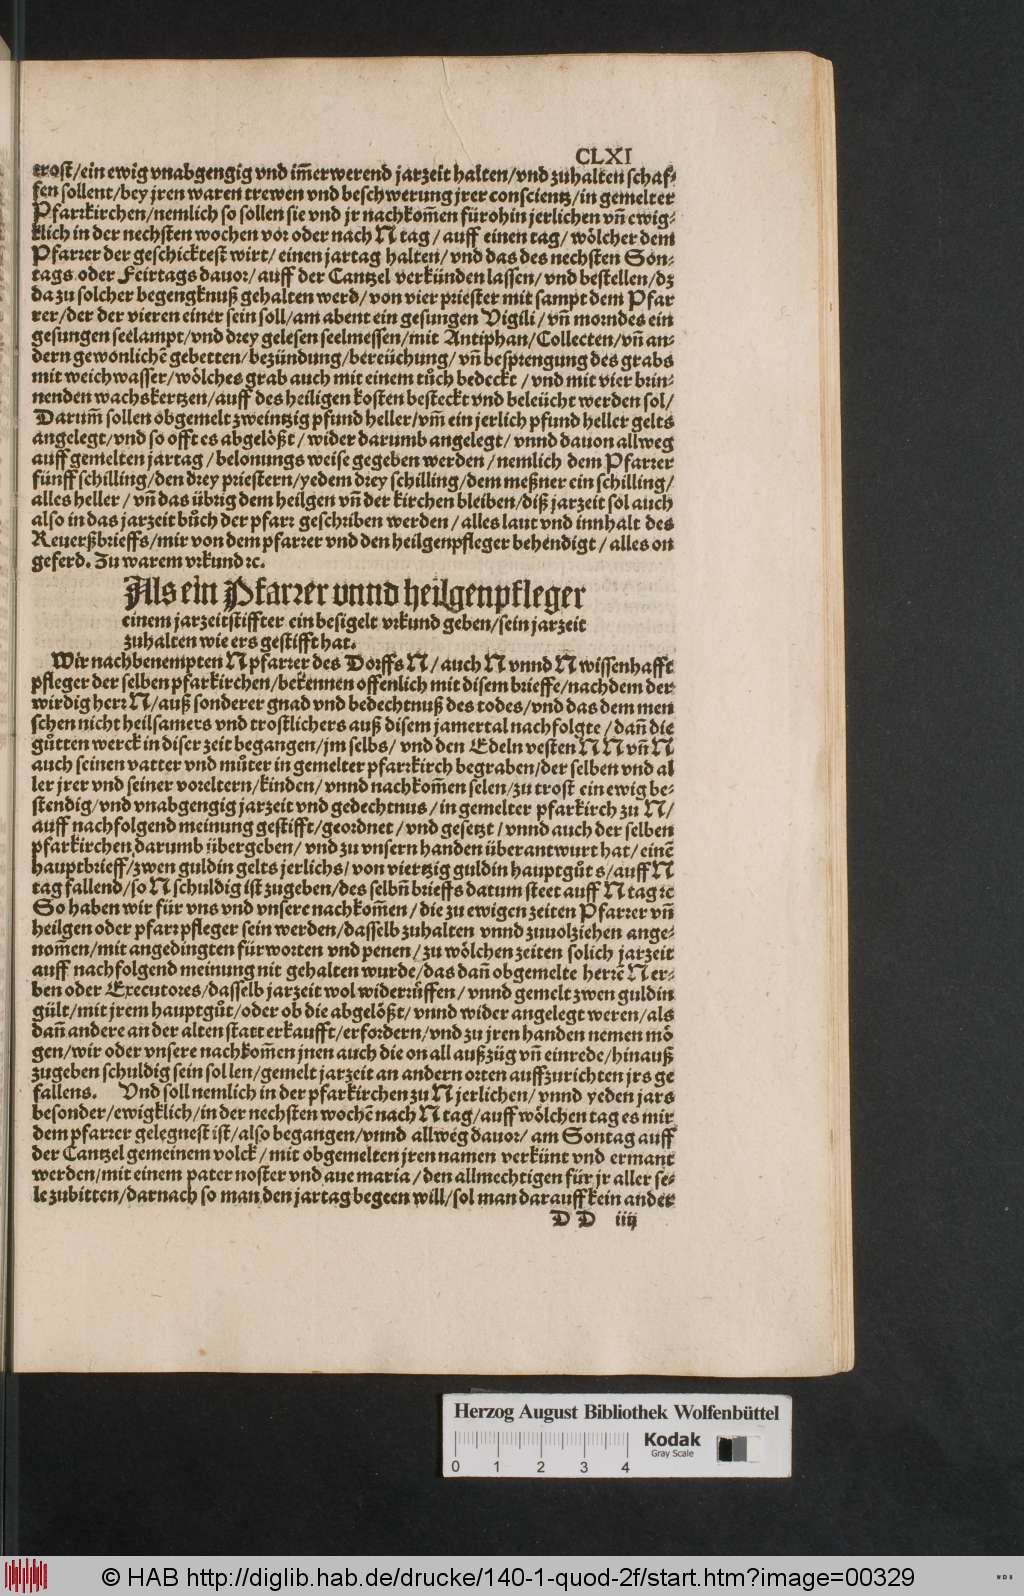 CLXI
trost/ein ewig vnabgengig vnd im̃erwerend jarzeit halten/vnd zuhalten schaf⸗
fen sollent/bey jren waren trewen vnd beschwerung jrer conscientz/in gemelter
Pfarrkirchen/nemlich so sollen sie vnd jr nachkom̃en fürohin jerlichen vñ ewig⸗
klich in der nechsten wochen vor oder nach N tag/auff einen tag/wölcher dem
Pfarrer der geschicktest wirt/einen jartag halten/vnd das des nechsten Son⸗
tags oder Feirtags dauor/auff der Cantzel verkünden lassen/vnd bestellen/dz
da zu solcher begengknuß gehalten werd/von vier priester mit sampt dem Pfar
rer/der der vieren einer sein soll/am abent ein gesungen Vigili/vñ morndes ein
gesungen seelampt/vnd drey gelesen seelmessen/mit Antiphan/Collecten/vñ an⸗
dern gewonlichẽ gebetten/bezündung/bereüchung/vñ besprengung des grabs
mit weichwasser/wölches grab auch mit einem tůch bedeckt/vnd mit vier brin⸗
nenden wachskertzen/auff des heiligen kosten besteckt vnd beleücht werden sol/
Darum̃ sollen obgemelt zweintzig pfund heller/vm̃ ein jerlich pfund heller gelts
angelegt/vnd so offt es abgelößt/wider darumb angelegt/vnnd dauon allweg
auff gemelten jartag/belonungs weise gegeben werden/nemlich dem Pfarrer
fünff schilling/den drey priestern/yedem drey schilling/dem meßner ein schilling/
alles heller/vñ das übrig dem heilgen vñ der kirchen bleiben/diß jarzeit sol auch
also in das jarzeit bůch der pfarr geschriben werden/alles laut vnd innhalt des
Reuerßbrieffs/mir von dem pfarrer vnd den heilgenpfleger behendigt/alles on
geferd. Zu warem vrkund ꝛc.
Als ein Pfarrer vnnd heilgenpfleger
einem jarzeitstiffter ein besigelt vrkund geben/sein jarzeit
zuhalten wie ers gestifft hat.
Wir nachbenempten N pfarrer des Dorffs N/auch N vnnd N wissenhafft
pfleger der selben pfarkirchen/bekennen offenlich mit disem brieffe/nachdem der
wirdig herr N/auß sonderer gnad vnd bedechtnuß des todes/vnd das dem men
schen nicht heilsamers vnd trostlichers auß disem jamertal nachfolgte/dañ die
gůtten werck in diser zeit begangen/jm selbs/vnd den Edeln vesten N N vñ N
auch seinen vatter vnd můter in gemelter pfarrkirch begraben/der selben vnd al
ler jrer vnd seiner voreltern/kinden/vnnd nachkom̃en selen/zu trost ein ewig be⸗
stendig/vnd vnabgengig jarzeit vnd gedechtnus/in gemelter pfarkirch zu N/
auff nachfolgend meinung gestifft/geordnet/vnd gesetzt/vnnd auch der selben
pfarkirchen darumb übergeben/vnd zu vnsern handen überantwurt hat/einẽ
hauptbrieff/zwen guldin gelts jerlichs/von viertzig guldin hauptgůts/auff N
tag fallend/so N schuldig ist zugeben/des selbñ brieffs datum steet auff N tag ꝛc
So haben wir für vns vnd vnsere nachkom̃en/die zu ewigen zeiten Pfarrer vñ
heilgen oder pfarrpfleger sein werden/dasselb zuhalten vnnd zuuolziehen ange⸗
nom̃en/mit angedingten fürworten vnd penen/zu wölchen zeiten solich jarzeit
auff nachfolgend meinung nit gehalten wurde/das dañ obgemelte herrẽ N er⸗
ben oder Executores/dasselb jarzeit wol widerrůffen/vnnd gemelt zwen guldin
gült/mit jrem hauptgůt/oder ob die abgelößt/vnnd wider angelegt weren/als
dañ andere an der alten statt erkaufft/erfordern/vnd zu jren handen nemen mö
gen/wir oder vnsere nachkom̃en jnen auch die on all außzüg vñ einrede/hinauß
zugeben schuldig sein sollen/gemelt jarzeit an andern orten auffzurichten jrs ge
fallens. Vnd soll nemlich in der pfarkirchen zu N jerlichen/vnnd yeden jars
besonder/ewigklich/in der nechsten wochẽ nach N tag/auff wölchen tag es mir
dem pfarrer gelegnest ist/also begangen/vnnd allweg dauor/am Sontag auff
der Cantzel gemeinem volck/mit obgemelten jren namen verkünt vnd ermant
werden/mit einem pater noster vnd aue maria/den allmechtigen für jr aller se⸗
le zubitten/darnach so man den jartag begeen will/sol man darauff kein ander
D D iiij
Herzog August Bibliothek Wolfenbüttel
Kodak
Gray Scale
0 1 2 3 4
© HAB http://diglib.hab.de/drucke/140-1-quod-2f/start.htm?image=00329